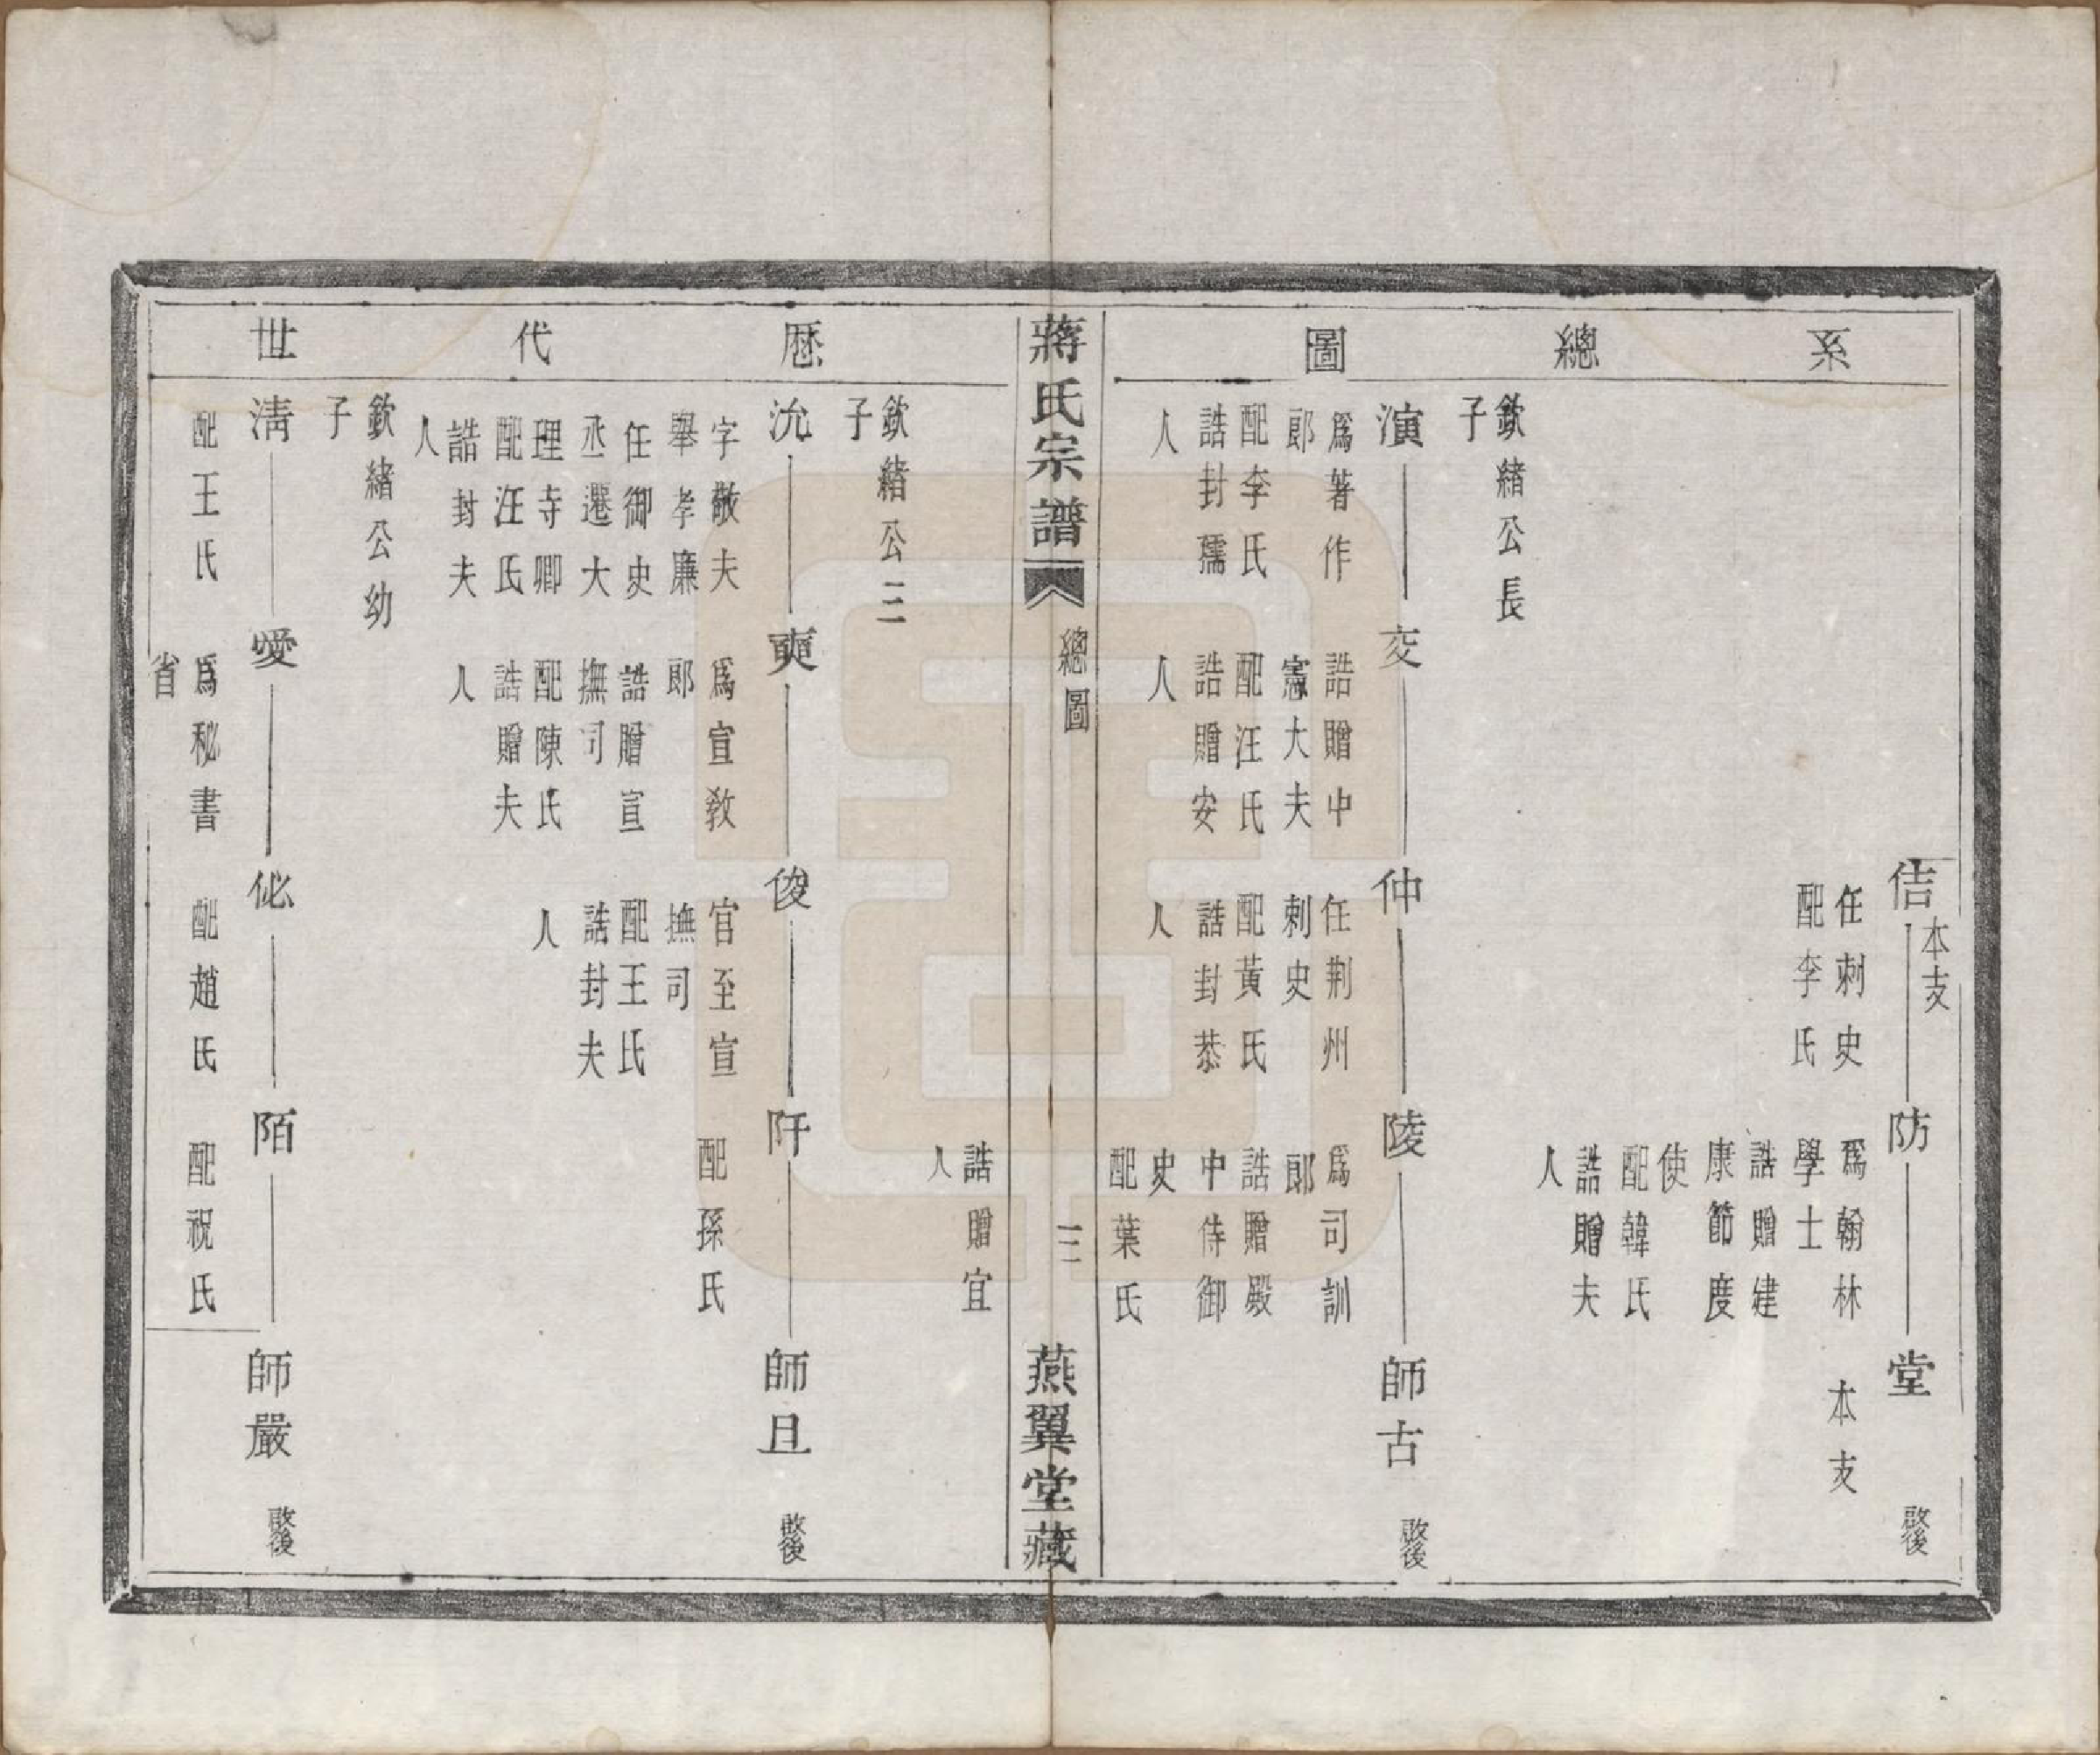 系總圖
佶
本支
任刺史
配李氏
防
爲翰林
學士
誥贈建
康節度
使
配韓氏
誥贈夫
人
堂
本支
啟後
欽緒公長
子
演
爲著作
郎
配李氏
誥封孺
人
交
誥贈中
憲大夫
配汪氏
誥贈安
人
仲
任荆州
刺史
配黃氏
誥封恭
人
陵
爲司訓
郎
誥贈殿
中侍御
史
配葉氏
師古
啟後
蔣氏宗譜
總圖
三
燕翼堂藏
歷代世
誥贈宜
人
欽緒公三
子
沇
字敬夫
舉孝廉
任御史
丞遷大
理寺卿
配汪氏
誥封夫
人
奭
爲宣敎
郎
誥贈宣
撫司
配陳氏
誥贈夫
人
俊
官至宣
撫司
配王氏
誥封夫
人
阡
配孫氏
師旦
啟後
欽緒公幼
子
淸
配王氏
愛
爲秘書
省
佖
配趙氏
陌
配祝氏
師嚴
啟後